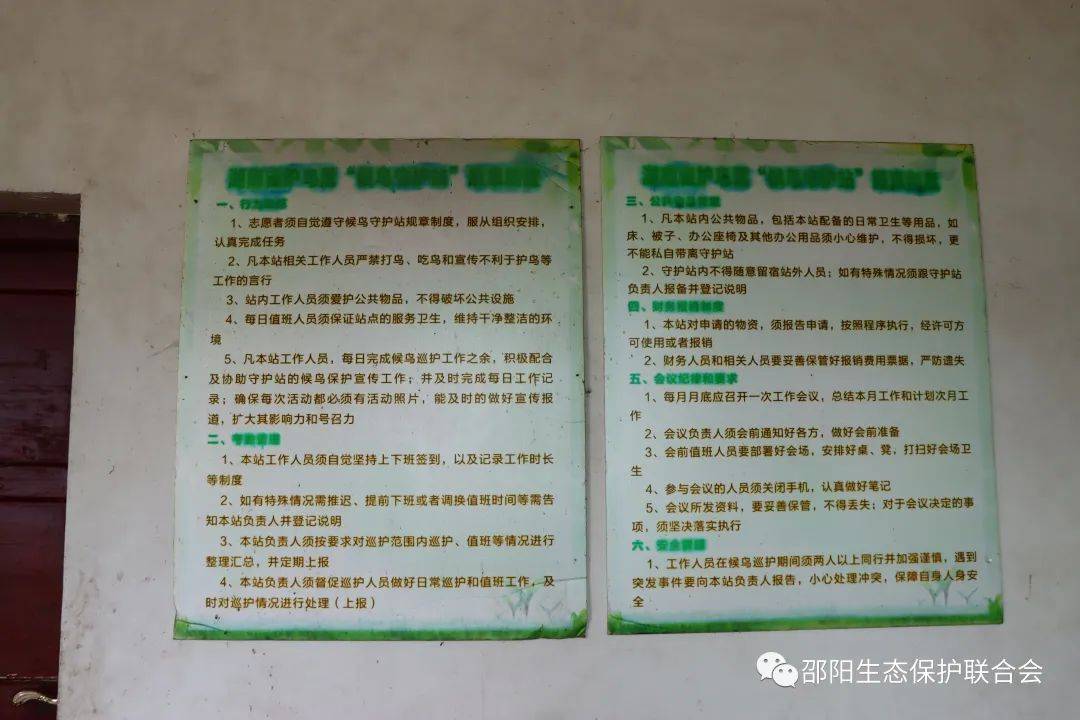 一、行为
1、志愿者须自觉遵守候鸟守护站规章制度，服从组织安排，
认真完成任务
2、凡本站相关工作人员严禁打鸟、吃鸟和宣传不利于护鸟等
工作的言行
3、站内工作人员须爱护公共物品，不得破坏公共设施
4、每日值班人员须保证站点的服务卫生，维持干净整洁的环
境
5、凡本站工作人员，每日完成候鸟巡护工作之余，积极配合
及协助守护站的候鸟保护宣传工作；并及时完成每日工作记
录；确保每次活动都必须有活动照片，能及时的做好宣传报
道，扩大其影响力和号召力
二、考勤管理
1、本站工作人员须自觉坚持上下班签到，以及记录工作时长
等制度
2、如有特殊情况需推迟、提前下班或者调换值班时间等需告
知本站负责人并登记说明
3、本站负责人须按要求对巡护范围内巡护、值班等情况进行
整理汇总，并定期上报
4、本站负责人须督促巡护人员做好日常巡护和值班工作，及
时对巡护情况进行处理（上报）
三、公共
1、凡本站内公共物品，包括本站配备的日常卫生等用品，如
床、被子、办公座椅及其他办公用品须小心维护，不得损坏，更
不能私自带离守护站
2、守护站内不得随意留宿站外人员；如有特殊情况须跟守护站
负责人报备并登记说明
四、财务报销制度
1、本站对申请的物资，须报告申请，按照程序执行，经许可方
可使用或者报销
2、财务人员和相关人员要妥善保管好报销费用票据，严防遗失
五、会议纪律和要求
1、每月月底应召开一次工作会议，总结本月工作和计划次月工
作
2、会议负责人须会前通知好各方，做好会前准备
3、会前值班人员要部署好会场，安排好桌、凳，打扫好会场卫
生
4、参与会议的人员须关闭手机，认真做好笔记
5、会议所发资料，要妥善保管，不得丢失；对于会议决定的事
项，须坚决落实执行
六、安全管理
1、工作人员在候鸟巡护期间须两人以上同行并加强谨慎，遇到
突发事件要向本站负责人报告，小心处理冲突，保障自身人身安
全
邵阳生态保护联合会